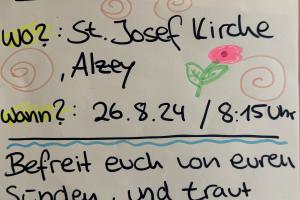 wo?: St. Josef Kirche
, Alzey
wann?: 26.8.24 / 8:15 Uhr
Befreit euch von euren
Sünden, und traut